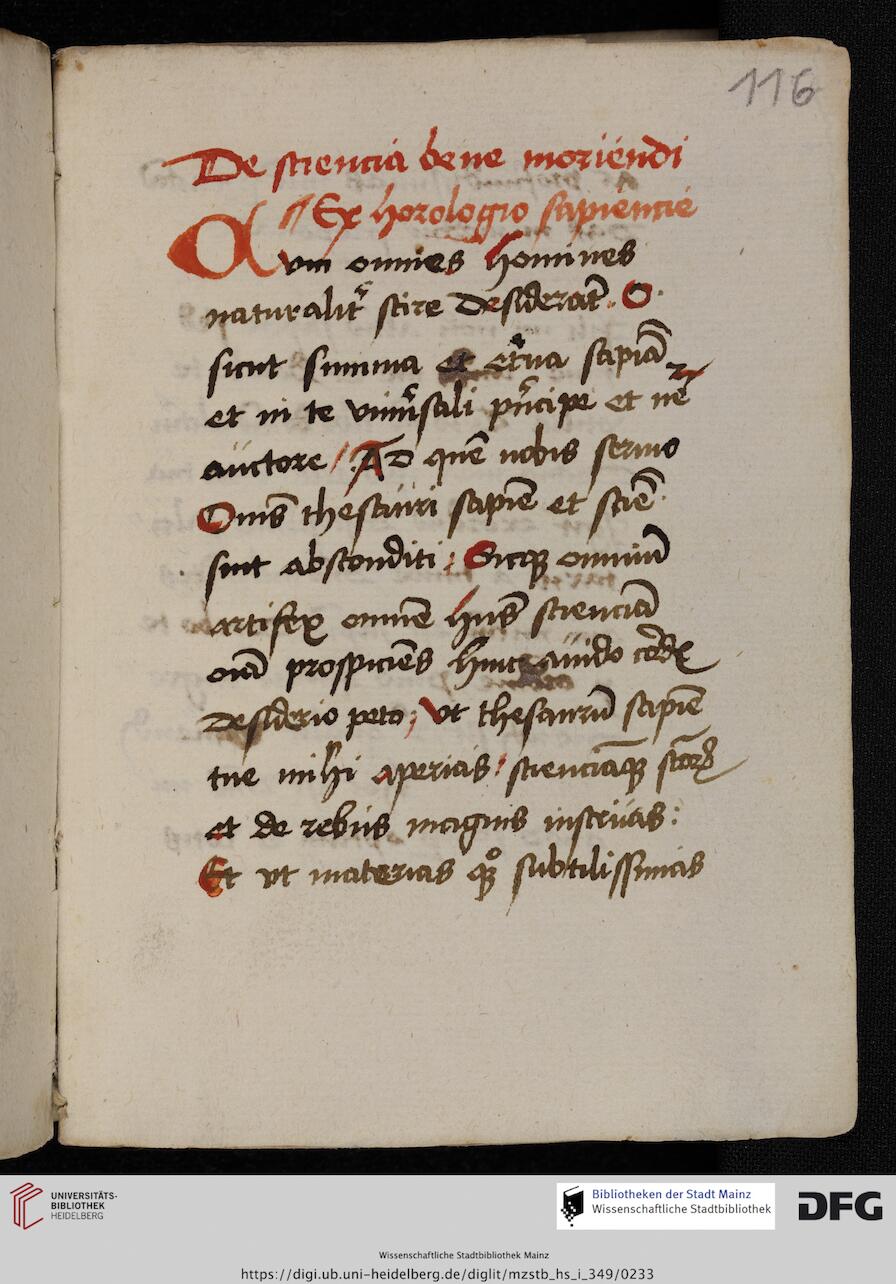 116
De sciencia bene moriendi
¶ Ex horologio sapiencie
Qvm omnes homines
naturalit᷑ scire desiderāt. O
sicut summa et et᷑na sapiā
et in te vniu᷑sali pn᷑cipe et nē
auctore / Ad quē nobis sermo
Omīs thesauri sapiē et sciē.
sint absconditi; Sicqꝫ omniū
artifex omnē hn̄s scienciā
oīa prospiciēs auido
desiderio peto; Vt thesaurū sapiē
tue mihi aperias: scienciāqꝫ sc̄oꝝ
et de rebus magnis instruas:
Et vt materias qꝫ° subtilissimas
UNIVERSITÄTS-
BIBLIOTHEK
HEIDELBERG
Bibliotheken der Stadt Mainz
Wissenschaftliche Stadtbibliothek
DFG
Wissenschaftliche Stadtbibliothek Mainz
https://digi.ub.uni-heidelberg.de/diglit/mzstb_hs_i_349/0233